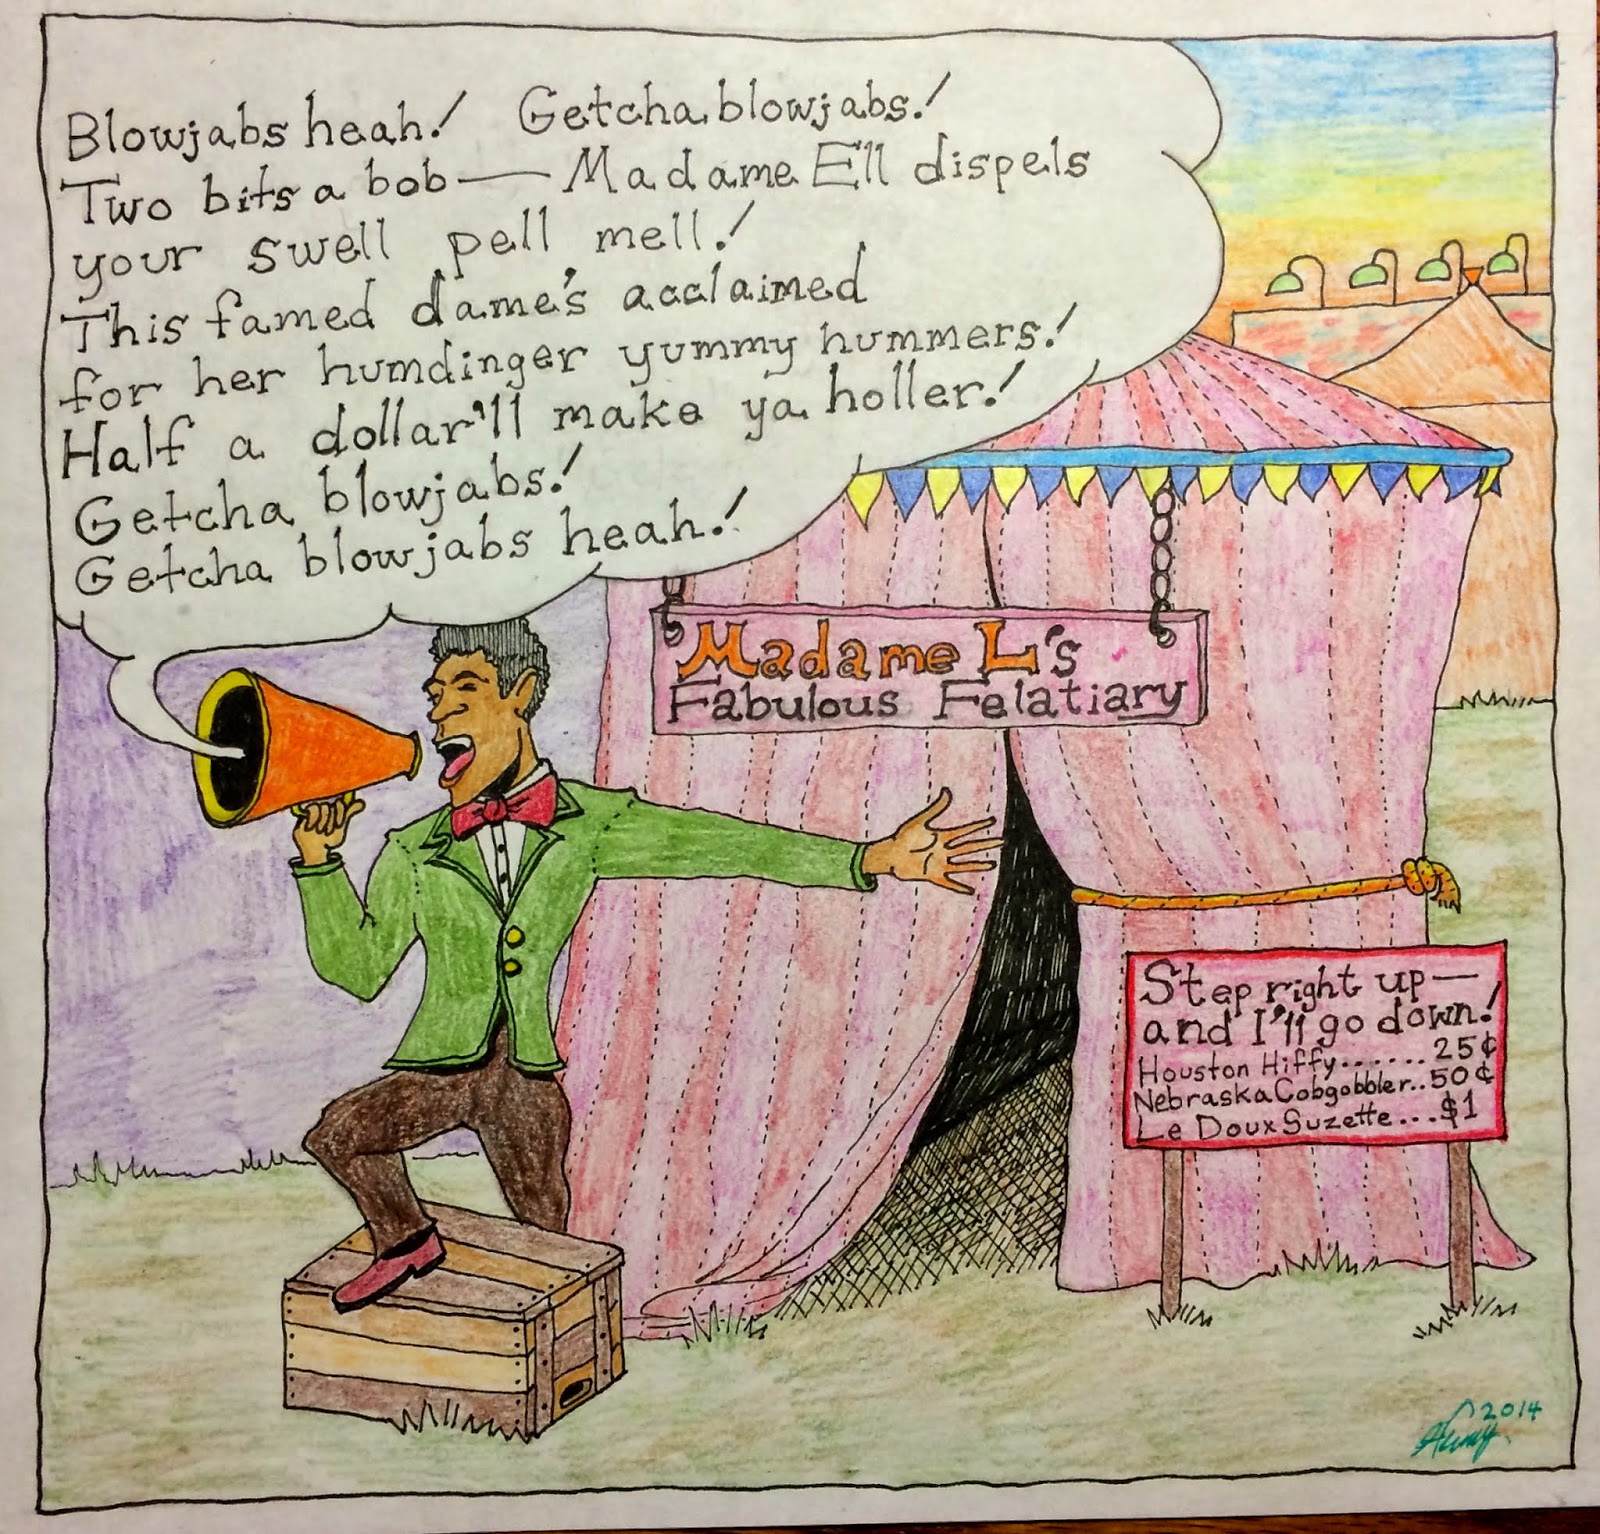 Blowjabs heah! Getcha blowjabs!
Two bits a bob — Madame Ell dispels
your swell pell mell!
This famed dame's acclaimed
for her humdinger yummy hummers!
Half a dollar'll make ya holler!
Getcha blowjabs!
Getcha blowjabs heah!
Madame L's
Fabulous Felatiary
Step right up —
and I'll go down!
Houston Hiffy....... 25¢
Nebraska Cobgobbler..50¢
Le Doux Suzette...$1
2014